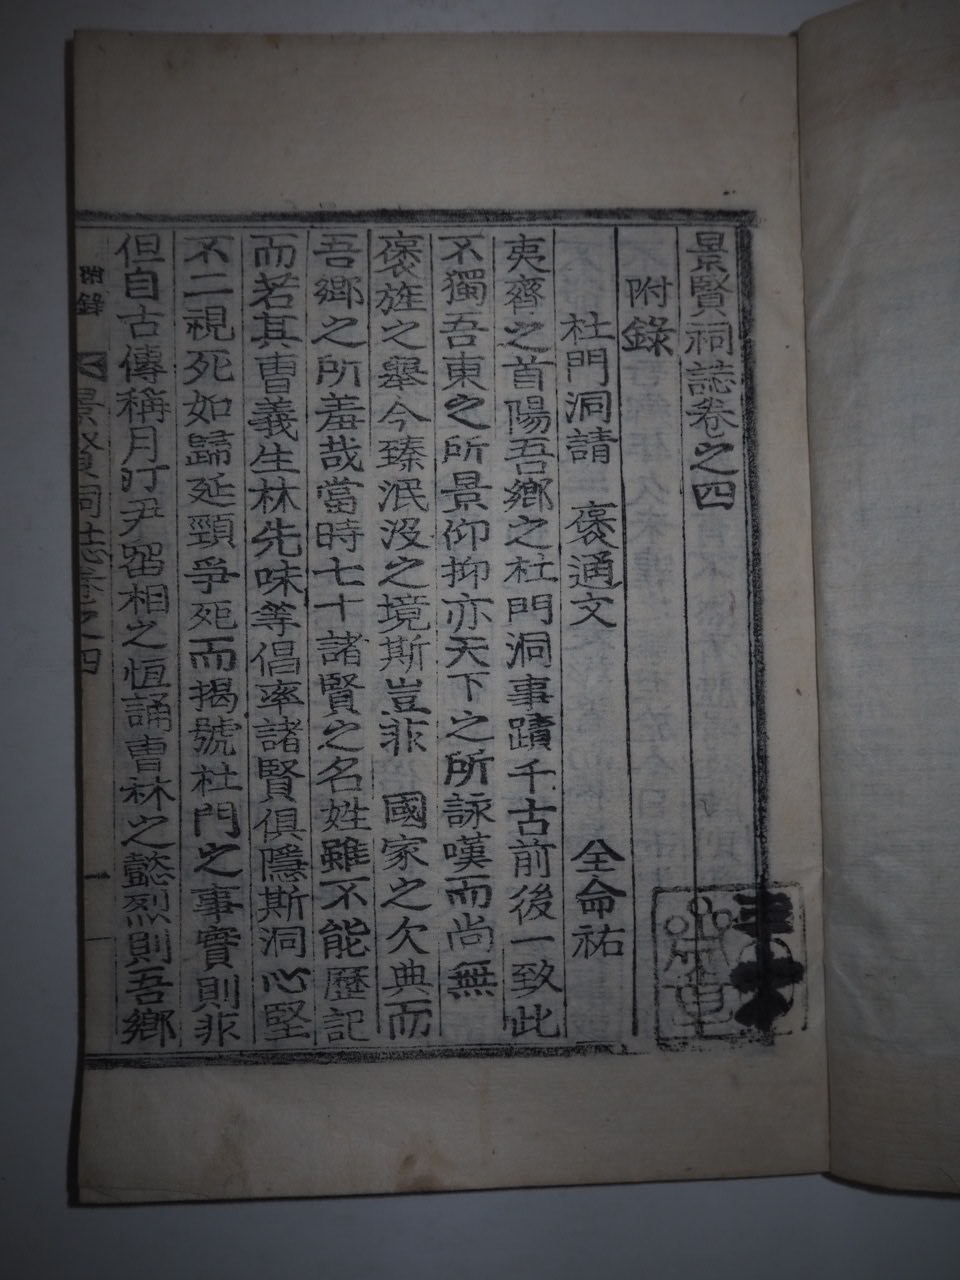 景賢祠誌卷之四
附錄
杜門洞請 褒通文 全命祐
夷齊之首陽吾鄉之杜門洞事蹟千古前後一致此
不獨吾東之所景仰抑亦天下之所詠嘆而尚無
褒旌之舉今臻泯沒之境斯豈非 國家之欠典而
吾鄉之所羞哉當時七十諸賢之名姓雖不能歷記
而若其曺義生林先味等倡率諸賢俱隱斯洞心堅
不二視死如歸延頸爭死而揭號杜門之事實則非
但自古傳稱月汀尹留相之恒誦曺林之懿烈則吾鄉
附錄 景賢祠誌卷之四 一